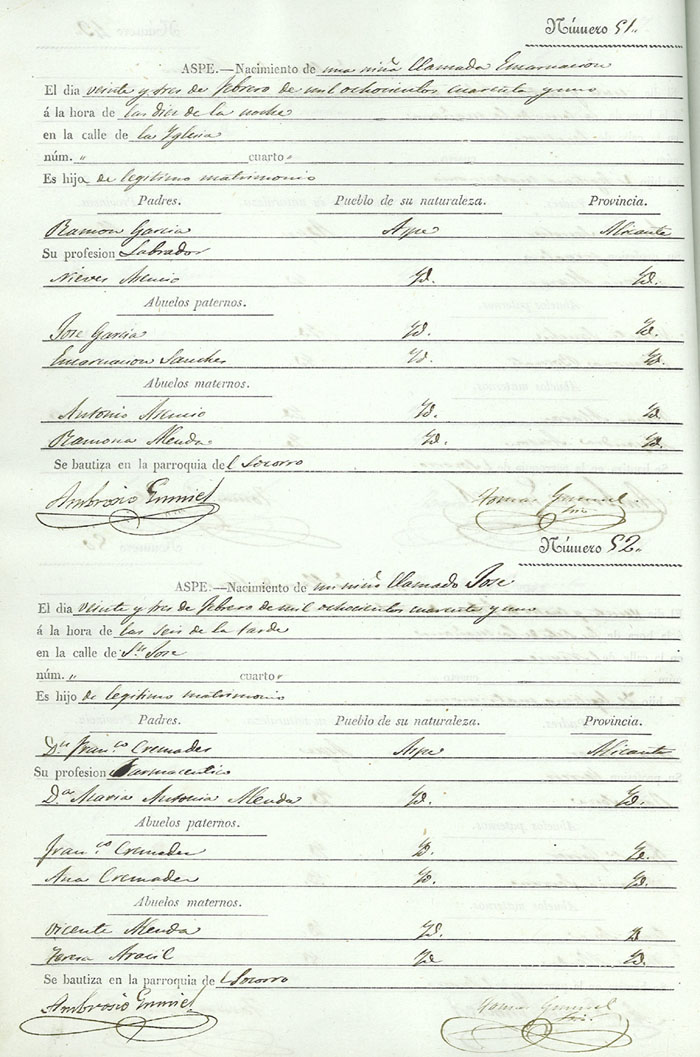 Número 51.
ASPE.—Nacimiento de una niña llamada Encarnacion
El dia veinte y tres de febrero de mil ochocientos cuarenta y uno
á la hora de las diez de la noche
en la calle de la Yglesia
núm. " cuarto "
Es hijo de legitimo matrimonio
Padres. Pueblo de su naturaleza. Provincia.
Ramon Garcia Aspe Alicante
Su profesion Labrador
Nieves Yd. Yd.
Abuelos paternos.
Jose Garcia Yd. Yd.
Encarnacion Sanches Yd. Yd.
Abuelos maternos.
Antonio Yd. Yd.
Ramona Yd. Yd.
Se bautiza en la parroquia del Socorro
Ambrosio
Número 52.
ASPE.—Nacimiento de un niño llamado Jose
El dia veinte y tres de febrero de mil ochocientos cuarenta y uno
á la hora de las seis de la tarde
en la calle de Sn Jose
núm. " cuarto "
Es hijo de legitimo matrimonio
Padres. Pueblo de su naturaleza. Provincia.
Dn Franco Cremades Aspe Alicante
Su profesion Farmaceutico
Da Maria Antonia Yd. Yd.
Abuelos paternos.
Franco Cremades Yd. Yd.
Ana Cremades Yd. Yd.
Abuelos maternos.
Vicente Yd. Yd
Teresa Aracil Yd Yd.
Se bautiza en la parroquia del Socorro
Ambrosio